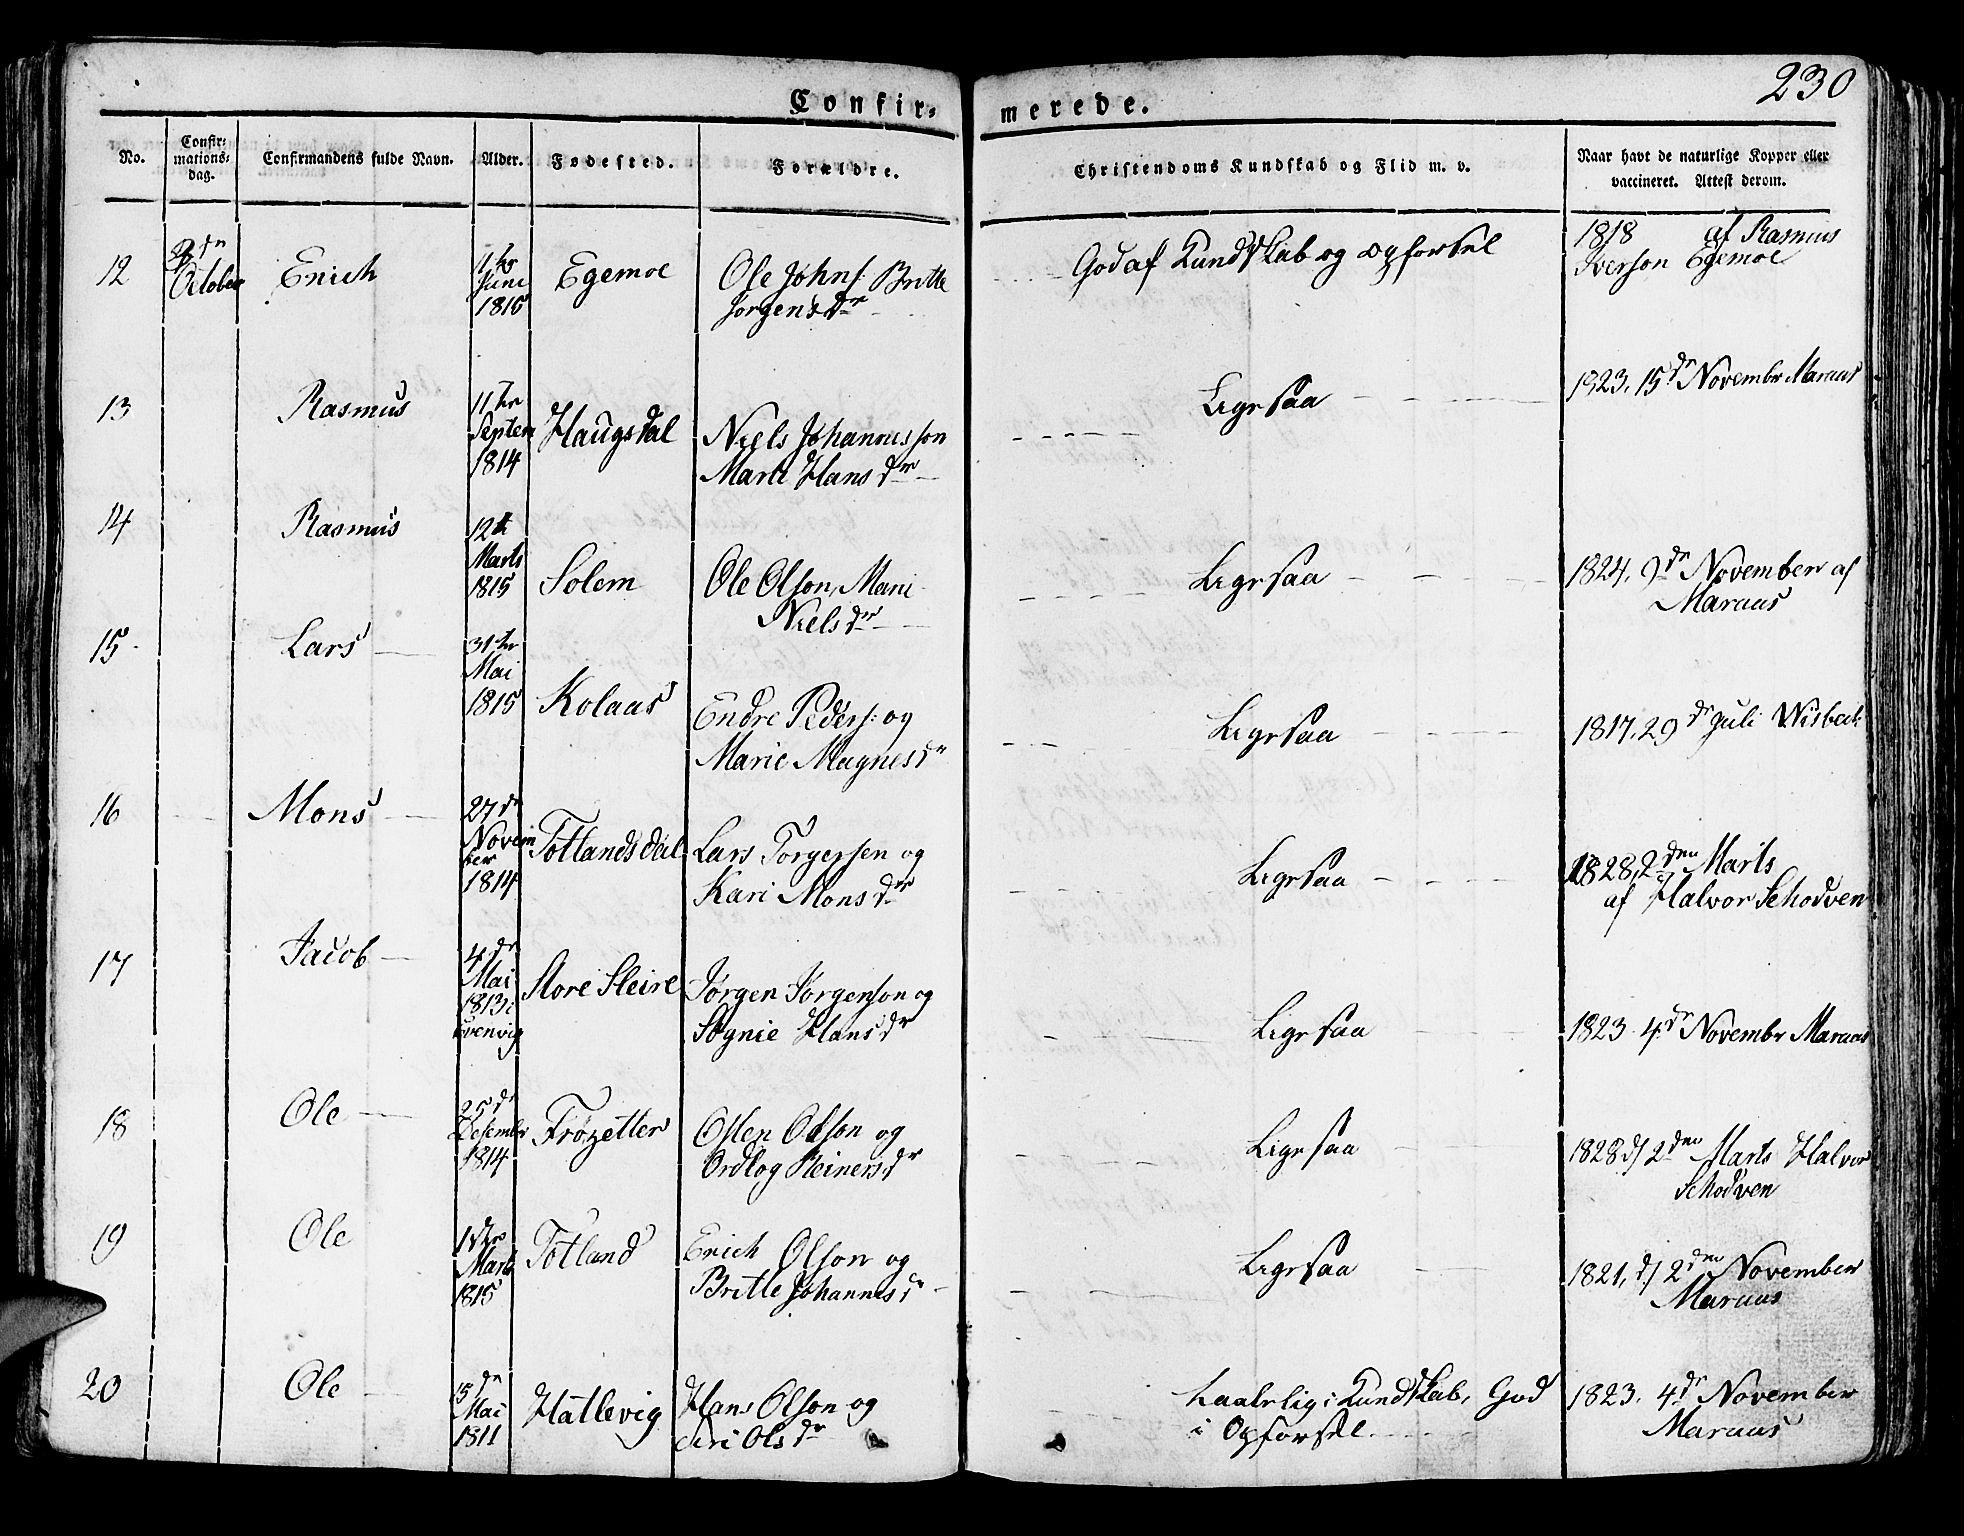 230
Confir-
merede.
No.
Confir-
mations-
dag.
Confirmandens fulde Navn.
Alder.
Fødested.
Forældre.
Christendoms Kundskab og Flid m. v.
Naar havt de naturlige Kopper eller
vaccineret. Attest derom.
12
October
Erich
11te
Juni
1815
Egemoe
Ole Johns: Britte
Jørgensdr
God af Kundskab og opførsel
1818 af Rasmus
Iverson Egemoe
13
Rasmus
11te
Septem
1814
Haugsdal
Niels Johannesson
Marti Hansdr
Ligesaa
1823, 15de Novembr Maraas
14
Rasmus
12te
Marts
1815
Solem
Ole Olson, Mari
Nielsdr
Ligesaa
1824, 9de November af
Maraas
15
Lars
31te
Mai
1815
Kolaas
Endre Peders: og
Marie Magnesdr
Ligesaa
1817, 29de Juli Wisbech
16
Mons
27de
Novem
ber
1814
Totlandsdal
Lars Torgersen og
Kari Monsdr
Ligesaa
1828, 2den Marts
af Halvor Schodven
17
Jacob
4de
Mai
1813 i
Evenvig
Store Steire
Jørgen Jørgenson og
Sognie Hansdr
Ligesaa
1823 4de Novembr Maraas
18
Ole
25de
Desembr
1814
Frøzetter
Osten Olson og
Ordlog Reinersdr
Ligesaa
1828 d/ 2den Marts Halvor
Schodven
19
Ole
1ste
Marts
1815
Totland
Erich Olson og
Britte Johannesdr
Ligesaa
1821, d/ 2den November
Maraas
20
Ole
15de
Mai
1811
Hatlevig
Hans Olson og
Siri Olsdr
Taalelig i Kundskab, God
i Opførsel
1823. 4de November
Maraas